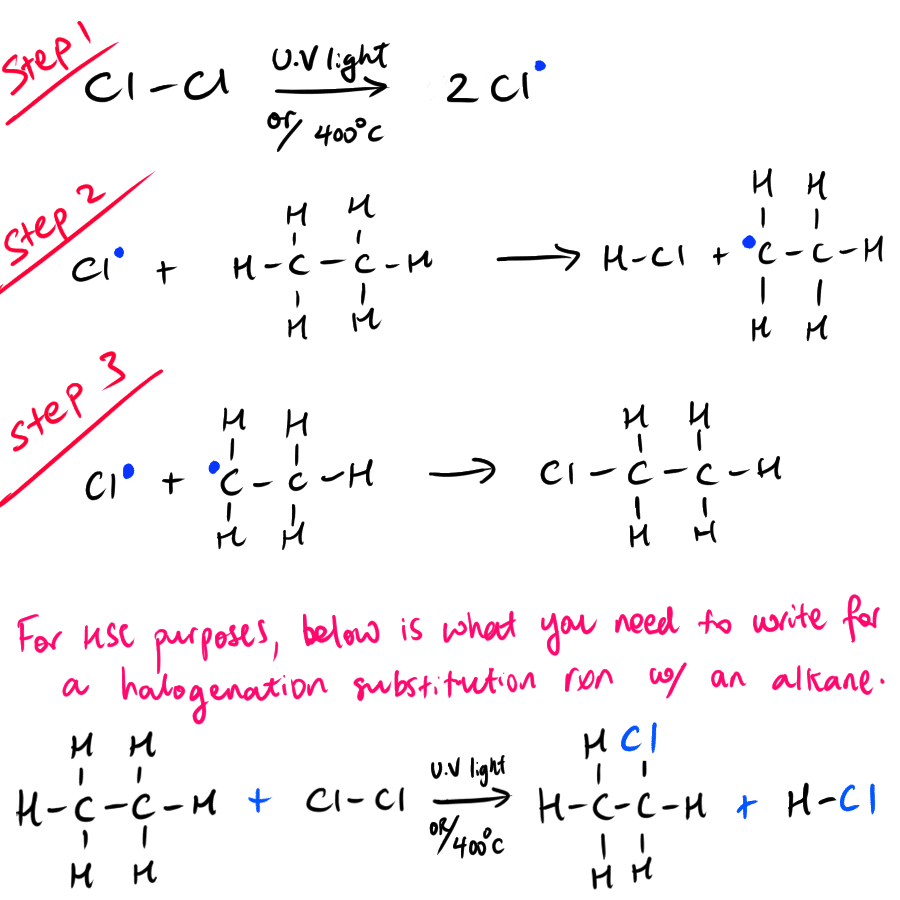 Step 1
Cl-Cl U.V light or/ 400°C 2 Cl•
Step 2
H H H H
Cl• + H-C-C-H H-Cl + •C-C-H
H H H H
Step 3
H H H H
Cl• + •C-C-H Cl-C-C-H
H H H H
For HSC purposes, below is what you need to write for
a halogenation substitution rxn w/ an alkane.
H H H Cl
H-C-C-H + Cl-Cl U.V light OR/ 400°C H-C-C-H + H-Cl
H H H H